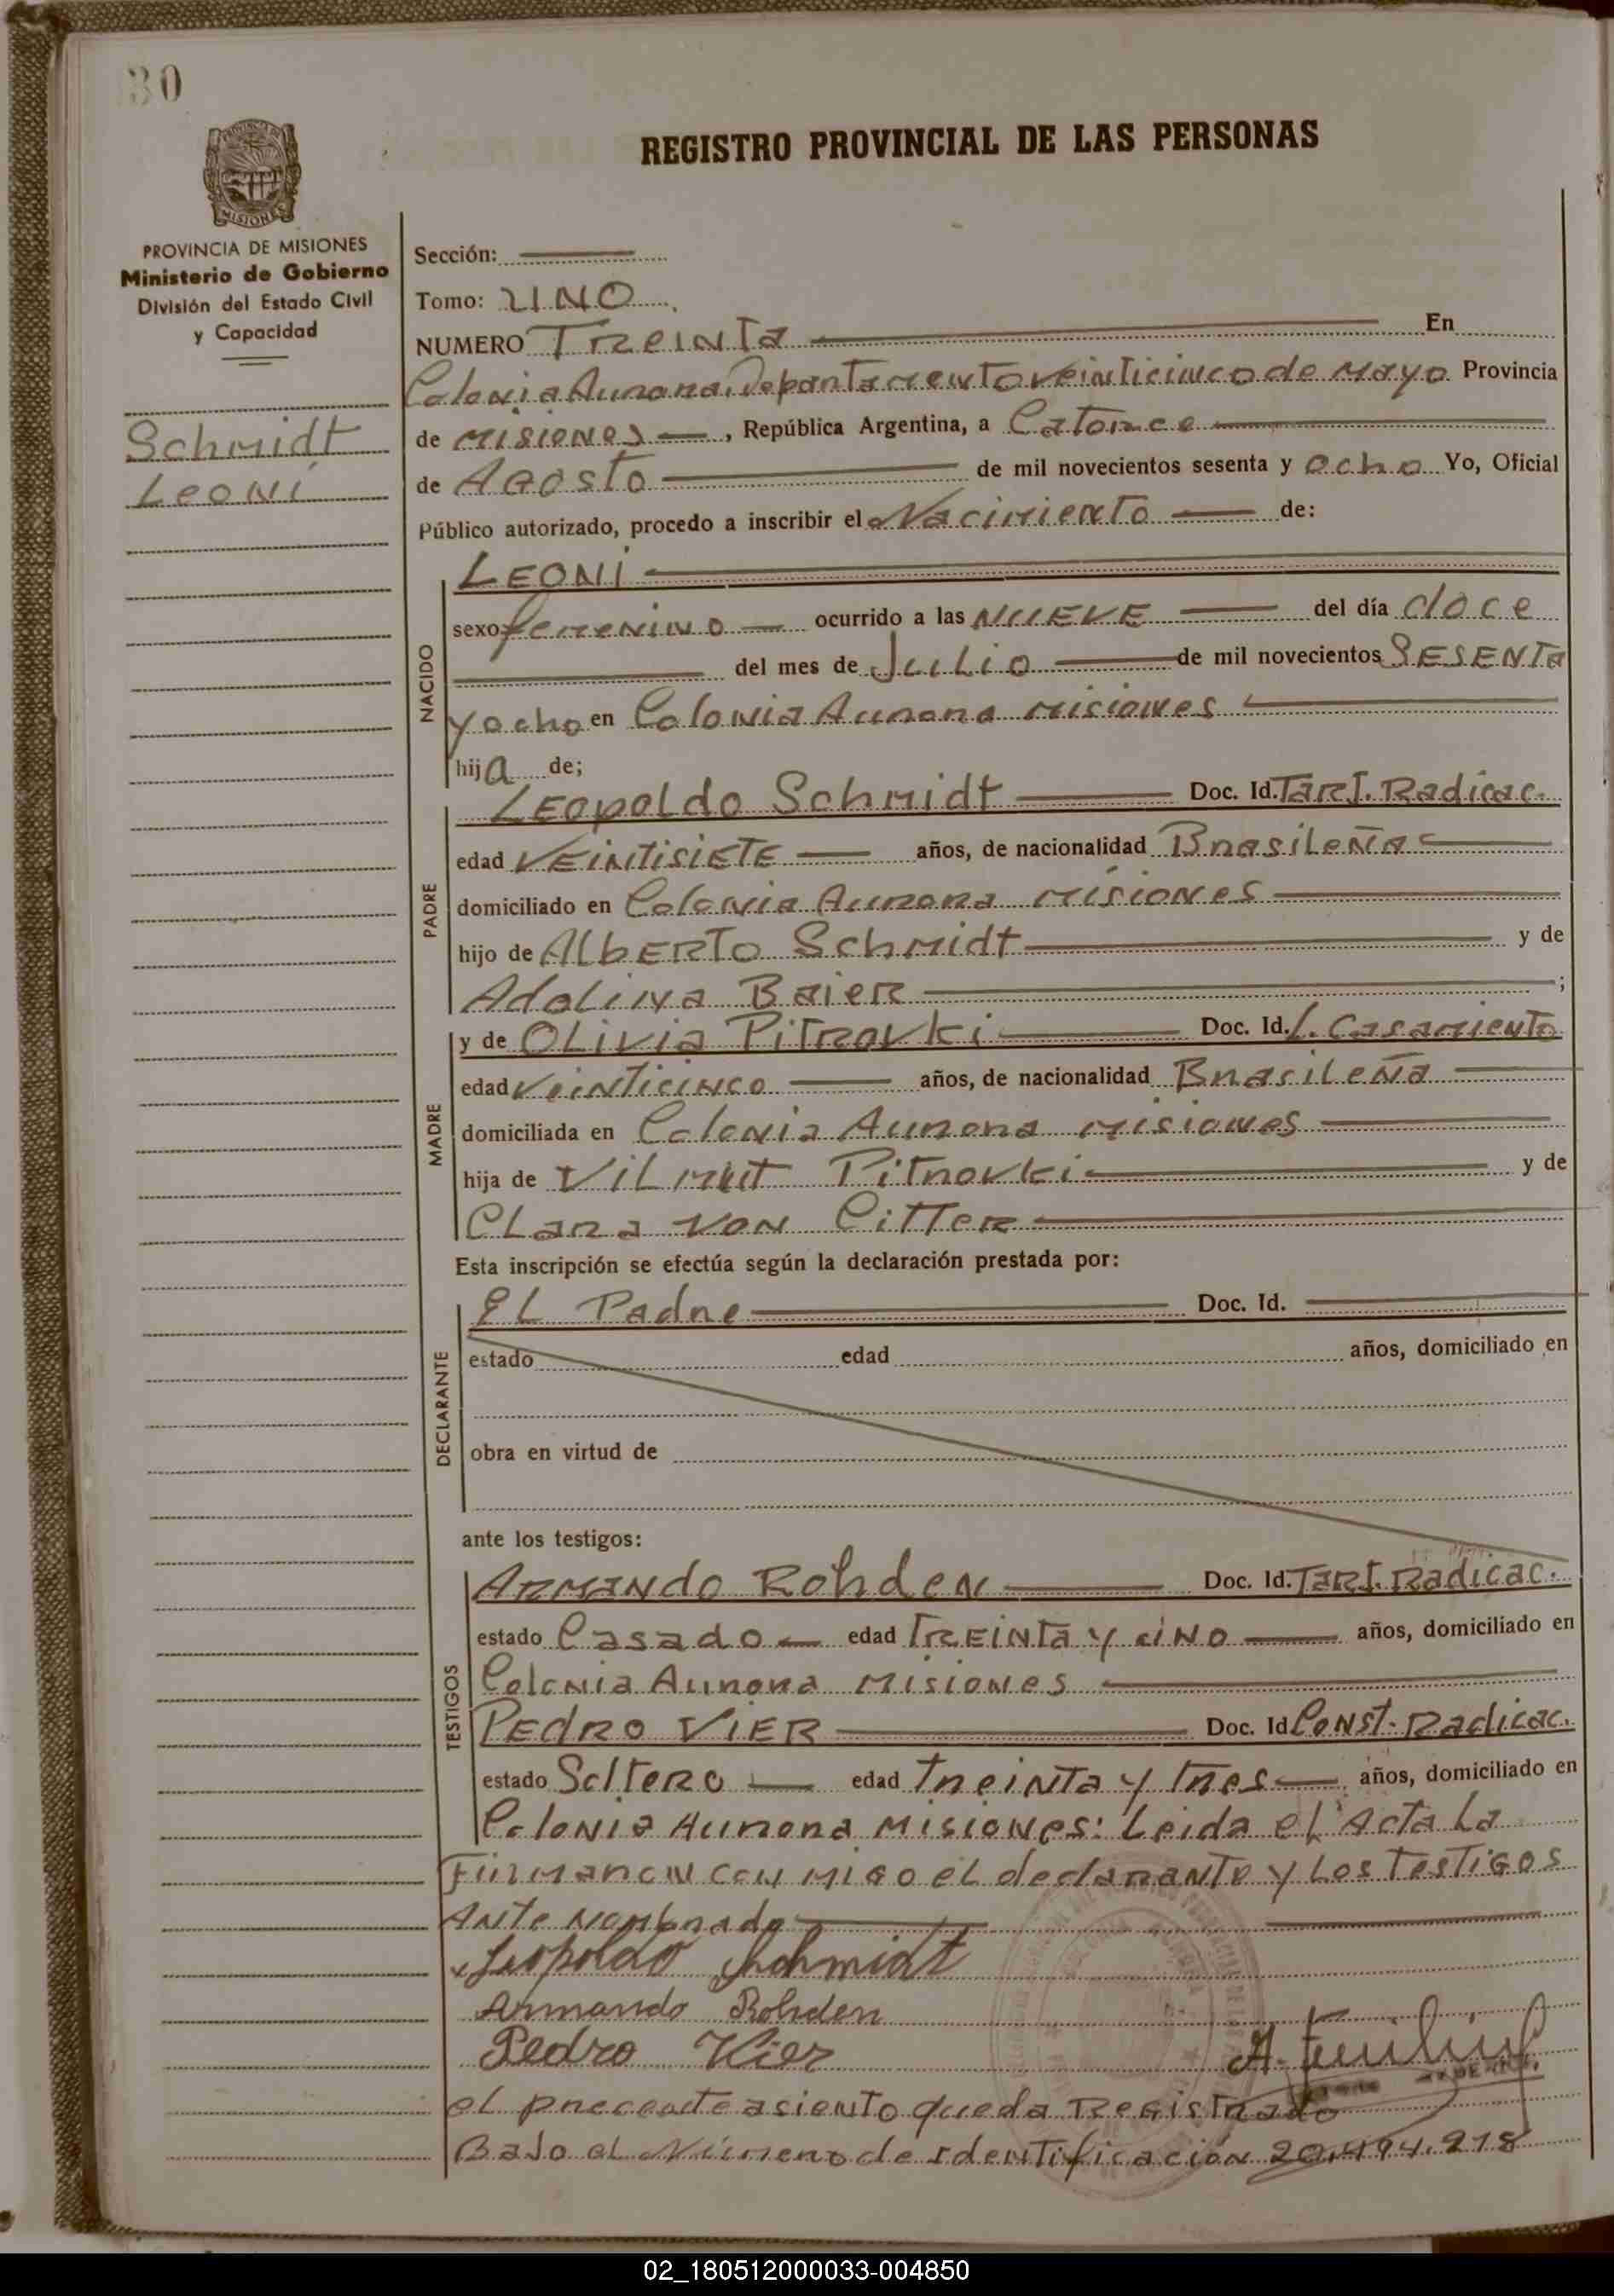 30
REGISTRO PROVINCIAL DE LAS PERSONAS
MISIONES
PROVINCIA DE MISIONES
Ministerio de Gobierno
División del Estado Civil
y Capacidad
Schmidt
Leoni
Sección:
Tomo: UNO
NUMERO Treinta En
Colonia Aurora, Departamento veinticinco de Mayo Provincia
de Misiones, República Argentina, a Catorce
de Agosto de mil novecientos sesenta y ocho Yo, Oficial
Público autorizado, procedo a inscribir el Nacimiento de:
NACIDO
LEONI
sexo femenino ocurrido a las NUEVE del día doce
del mes de Julio de mil novecientos SESENTA
y ocho en Colonia Aurora Misiones
hija de;
PADRE
Leopoldo Schmidt Doc. Id. Tarj. Radicac.
edad VEINTISIETE años, de nacionalidad Brasileña
domiciliado en Colonia Aurora Misiones
hijo de Alberto Schmidt y de
Adolina Baier ;
MADRE
y de Olivia Pitrovki Doc. Id. L. Casamiento
edad veinticinco años, de nacionalidad Brasileña
domiciliada en Colonia Aurora Misiones
hija de Vilmut Pitrovki y de
Clara von Citter
Esta inscripción se efectúa según la declaración prestada por:
DECLARANTE
El Padre Doc. Id.
estado edad años, domiciliado en
obra en virtud de
ante los testigos:
TESTIGOS
Armando Rohden Doc. Id. Tarj. Radicac.
estado Casado edad Treinta y uno años, domiciliado en
Colonia Aurora Misiones
Pedro Vier Doc. Id Const. Radicac.
estado Soltero edad Treinta y tres años, domiciliado en
Colonia Aurora Misiones: Leida el Acta La
Firmaron con migo el declarante y los testigos
Ante nombrado
Leopoldo Schmidt
Armando Rohden
Pedro Vier
el precente asiento queda Registrado
Bajo el Número de identificación 20.494.218
02_180512000033-004850